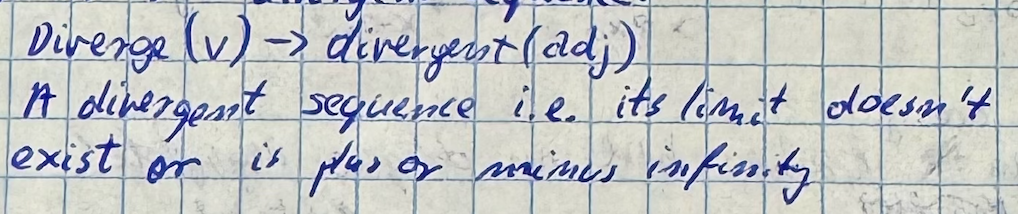 Diverge (v) → divergent (adj)
A divergent sequence i.e. its limit doesn't
exist or is plus or minus infinity